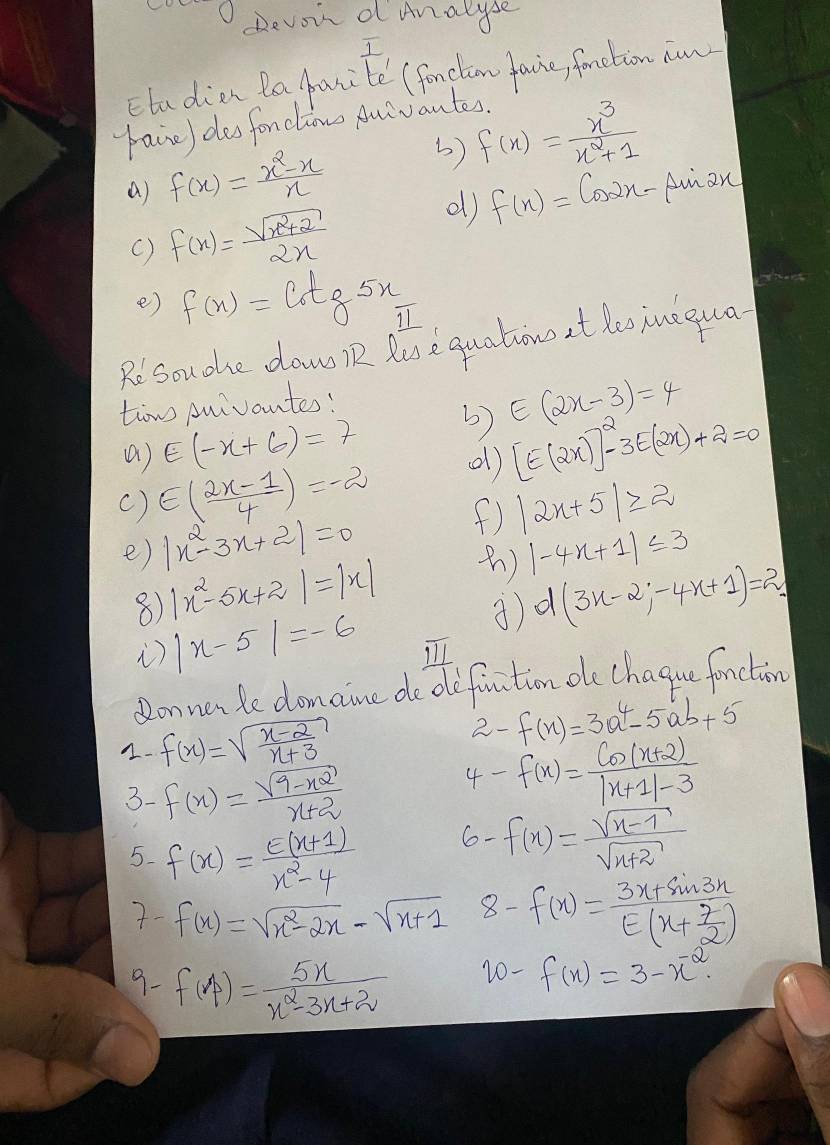 Devoir d'Analyse
I
Etudier la parité (fonction paire, fonction im-
paire) des fonctions suivantes.
a) f(x) = \frac{x^2-x}{x}
b) f(x) = \frac{x^3}{x^2+1}
c) f(x) = \frac{\sqrt{x^2+2}}{2x}
d) f(x) = Cos2x - sin2x
e) f(x) = Cotg 5x
II
Résoudre dans IR les équations et les inéqua-
tions suivantes:
a) E(-x+6) = 7
b) E(2x-3) = 4
c) E(\frac{2x-1}{4}) = -2
d) [E(2x)]^2 - 3E(2x) + 2 = 0
e) |x^2-3x+2| = 0
f) |2x+5| ≥ 2
g) |x^2-5x+2| = |x|
h) |-4x+1| ≤ 3
i) |x-5| = -6
j) d(3x-2; -4x+1) = 2.
III
Donner le domaine de définition de Chaque fonction
1- f(x) = \sqrt{\frac{x-2}{x+3}}
2- f(x) = 3a^4 - 5ab + 5
3- f(x) = \frac{\sqrt{9-x^2}}{x+2}
4- f(x) = \frac{Cos(x+2)}{|x+1|-3}
5- f(x) = \frac{E(x+1)}{x^2-4}
6- f(x) = \frac{\sqrt{x-1}}{\sqrt{x+2}}
7- f(x) = \sqrt{x^2-2x} - \sqrt{x+1}
8- f(x) = \frac{3x+sin3x}{E(x+\frac{7}{2})}
9- f(x) = \frac{5x}{x^2-3x+2}
10- f(x) = 3 - x^{-2}.